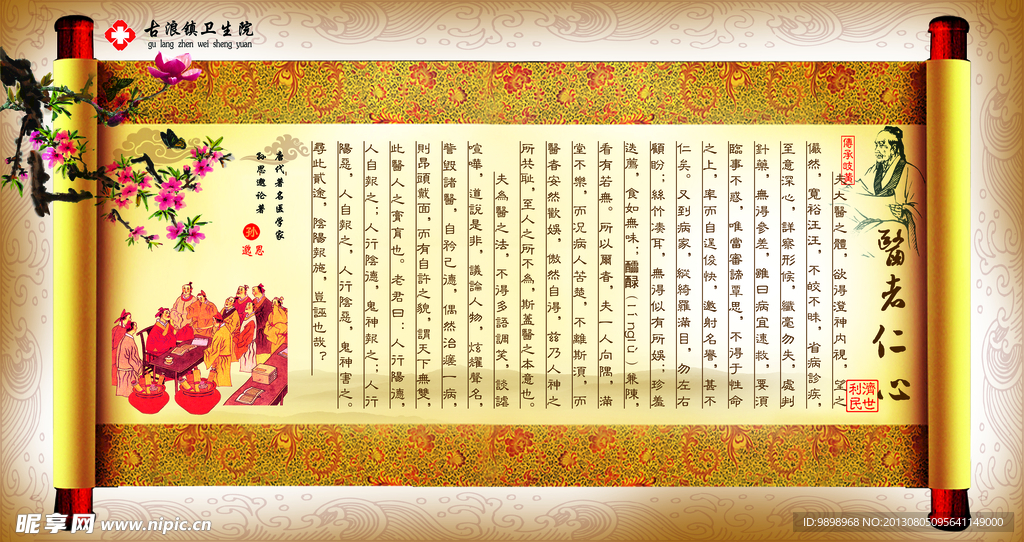 古浪镇卫生院
gu lang zhen wei sheng yuan
傳承岐黃
醫者仁心
濟世
利民
夫大醫之體，欲得澄神內視，望之
儼然，寬裕汪汪，不皎不昧，省病診疾，
至意深心，詳察形候，纖毫勿失，處判
針藥，無得參差，雖曰病宜速救，要須
臨事不惑，唯當審諦覃思，不得于性命
之上，率而自逞俊快，邀射名譽，甚不
仁矣。又到病家，縱綺羅滿目，勿左右
顧盼；絲竹湊耳，無得似有所娛；珍羞
迭薦，食如無味；醽醁（línglù）兼陳，
看有若無。所以爾者，夫一人向隅，滿
堂不樂，而況病人苦楚，不離斯須，而
醫者安然歡娛，傲然自得，茲乃人神之
所共耻，至人之所不為，斯蓋醫之本意也。
夫為醫之法，不得多語調笑，談謔
喧嘩，道說是非，議論人物，炫耀聲名，
訾毀諸醫，自矜己德，偶然治瘥一病，
則昂頭戴面，而有自許之貌，謂天下無雙，
此醫人之膏肓也。老君曰：人行陽德，
人自報之；人行陰德，鬼神報之；人行
陽惡，人自報之，人行陰惡，鬼神害之。
尋此貳途，陰陽報施，豈誣也哉？
唐代著名医学家
孙思邈论著
孙
思
邈
昵享网 www.nipic.cn
ID:9898968 NO:20130805095641149000